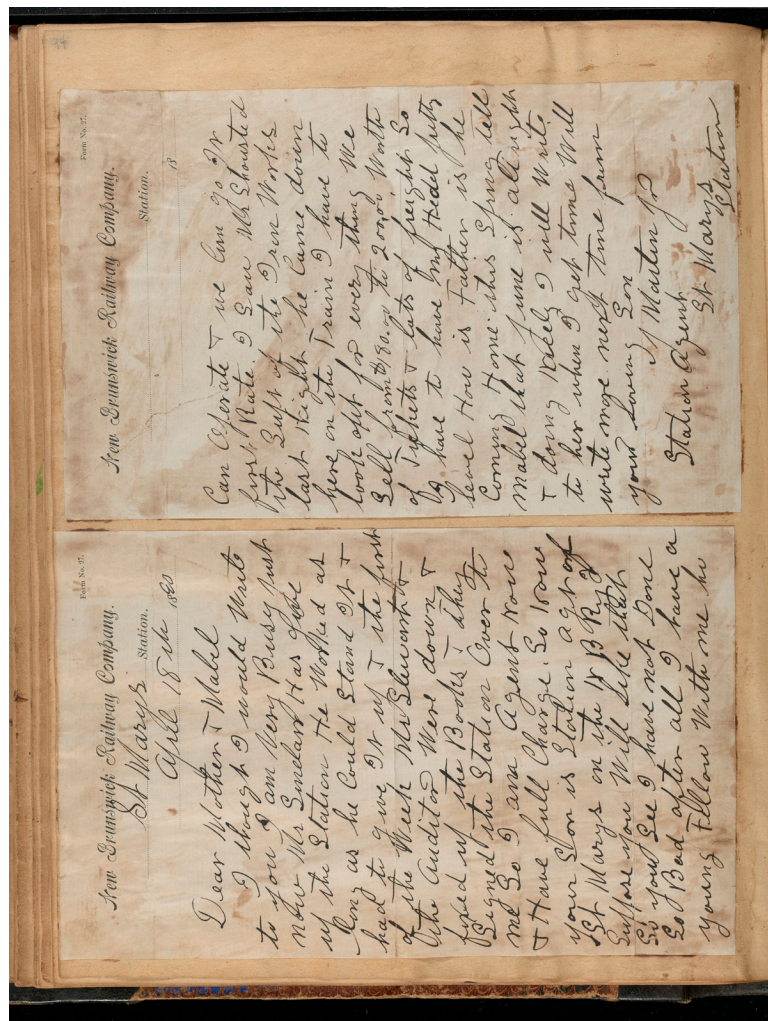 Form No. 27.
New Brunswick Railway Company.
St Marys Station.
April 18th 1880
Dear Mother & Mabel
I though I would Write
to you I am Very Busy Just
now Mr Sinclair Has give
up the Station He Worked as
long as he Could Stand It &
had to give It up & the first
of the Week Mr Stewart &
the Auditor Were down &
fixed up the Books & they
Signed the Station Over to
me So I am Agent now
& Have full Charge. So now
your Son is Station agt of
St Marys on the N B Ry I
Suppose you Will Like that
So you See I have not Done
So Bad after all I have a
young Fellow With me he
Form No. 27.
New Brunswick Railway Company.
Station.
18
Can Operate & we Can go It
first Rate I Saw Mr
the Supt of the Iron Works
last Night he Came down
here on the Train I have to
look out for every thing We
Sell from $180.00 to 200.00 Worth
of Tickets & lots of freight So
I have to have my Head putty
level How is Father is he
Coming Home this Spring tell
Mabel that June is all right
& doing Well I will Write
to her when I get time Will
write more next time from
your loving Son
Martin Jr
Station Agent
St Marys
Station